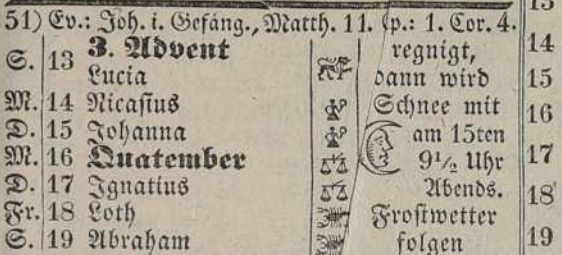 51) Ev.: Joh. i. Gefäng., Matth. 11. Ep.: 1. Cor. 4.
S. 13 3. Advent regnigt,
Lucia dann wird
M. 14 Nicasius Schnee mit
D. 15 Johanna am 15ten
M. 16 Quatember 9½ Uhr
D. 17 Ignatius Abends.
Fr. 18 Loth Frostwetter
S. 19 Abraham folgen
13
14
15
16
17
18
19